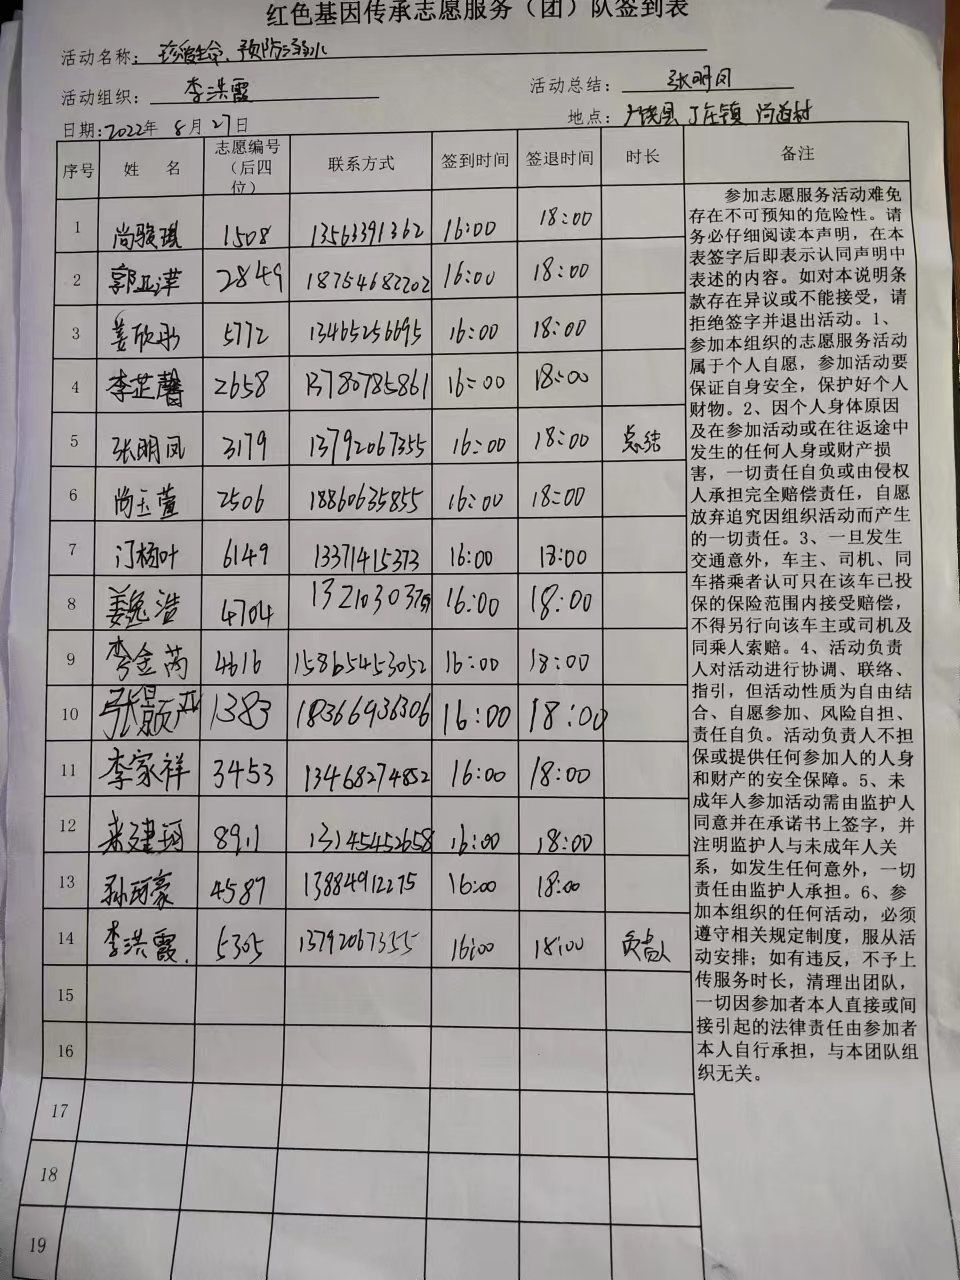 红色基因传承志愿服务（团）队签到表
活动名称：珍爱生命、预防溺水
活动组织：李洪霞 活动总结：张明凤
日期：2022年 8月27日 地点：广饶县 丁庄镇 尚道村
序号 姓 名 志愿编号（后四位） 联系方式 签到时间 签退时间 时长 备注
1 尚骏琪 1508 13563391362 16:00 18:00
2 郭亚洋 2849 18754682202 16:00 18:00
3 姜欣彤 5772 13465256695 16:00 18:00
4 李芷馨 2658 13780785861 16:00 18:00
5 张明凤 3179 13792067355 16:00 18:00 总结
6 尚玉萱 2506 18860635855 16:00 18:00
7 汀杨叶 6149 13371415373 16:00 18:00
8 姜逸浩 4704 16:00 18:00
9 李金芮 4616 15865453052 16:00 18:00
10 张景严 1383 18366936306 16:00 18:00
11 李家祥 3453 13468274852 16:00 18:00
12 8911 13145452658 16:00 18:00
13 孙珂豪 4587 13884912275 16:00 18:00
14 李洪霞. 5305 13792067355 16:00 18:00 负责人
15
16
17
18
19
参加志愿服务活动难免
存在不可预知的危险性。请
务必仔细阅读本声明，在本
表签字后即表示认同声明中
表述的内容。如对本说明条
款存在异议或不能接受，请
拒绝签字并退出活动。1、
参加本组织的志愿服务活动
属于个人自愿，参加活动要
保证自身安全，保护好个人
财物。2、因个人身体原因
及在参加活动或在往返途中
发生的任何人身或财产损
害，一切责任自负或由侵权
人承担完全赔偿责任，自愿
放弃追究因组织活动而产生
的一切责任。3、一旦发生
交通意外，车主、司机、同
车搭乘者认可只在该车已投
保的保险范围内接受赔偿，
不得另行向该车主或司机及
同乘人索赔。4、活动负责
人对活动进行协调、联络、
指引，但活动性质为自由结
合、自愿参加、风险自担、
责任自负。活动负责人不担
保或提供任何参加人的人身
和财产的安全保障。5、未
成年人参加活动需由监护人
同意并在承诺书上签字，并
注明监护人与未成年人关
系，如发生任何意外，一切
责任由监护人承担。6、参
加本组织的任何活动，必须
遵守相关规定制度，服从活
动安排；如有违反，不予上
传服务时长，清理出团队，
一切因参加者本人直接或间
接引起的法律责任由参加者
本人自行承担，与本团队组
织无关。